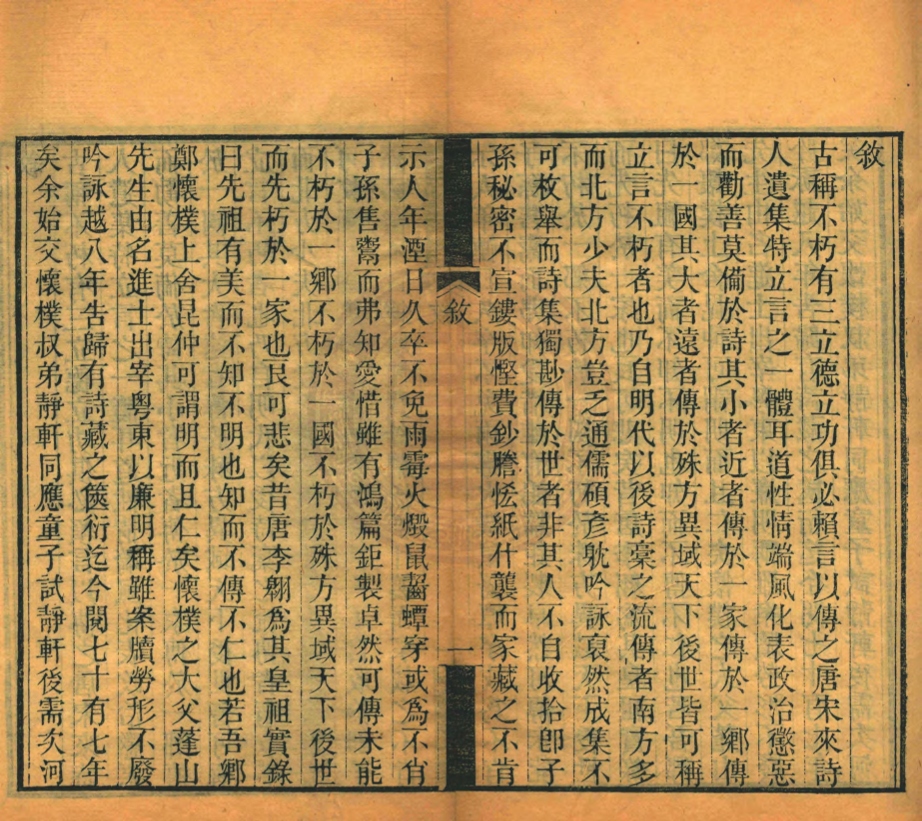 敘
古稱不朽有三立德立功俱必賴言以傳之唐宋來詩
人遺集特立言之一體耳道性情端風化表政治懲惡
而勸善莫備於詩其小者近者傳於一家傳於一鄉傳
於一國其大者遠者傳於殊方異域天下後世皆可稱
立言不朽者也乃自明代以後詩稾之流傳者南方多
而北方少夫北方豈乏通儒碩彥躭吟詠裒然成集不
可枚舉而詩集獨尠傳於世者非其人不自收拾卽子
孫秘密不宣鏤版慳費鈔謄恡紙什襲而家藏之不肯
敘
一
示人年湮日久卒不免雨霉火燬鼠齧蟫穿或為不肖
子孫售鬻而弗知愛惜雖有鴻篇鉅製卓然可傳未能
不朽於一鄉不朽於一國不朽於殊方異域天下後世
而先朽於一家也良可悲矣昔唐李翱爲其皇祖實錄
曰先祖有美而不知不明也知而不傳不仁也若吾鄉
鄭懷樸上舍昆仲可謂明而且仁矣懷樸之大父蓬山
先生由名進士出宰粵東以廉明稱雖案牘勞形不廢
吟詠越八年告歸有詩藏之篋衍迄今閱七十有七年
矣余始交懷樸叔弟靜軒同應童子試靜軒後需次河